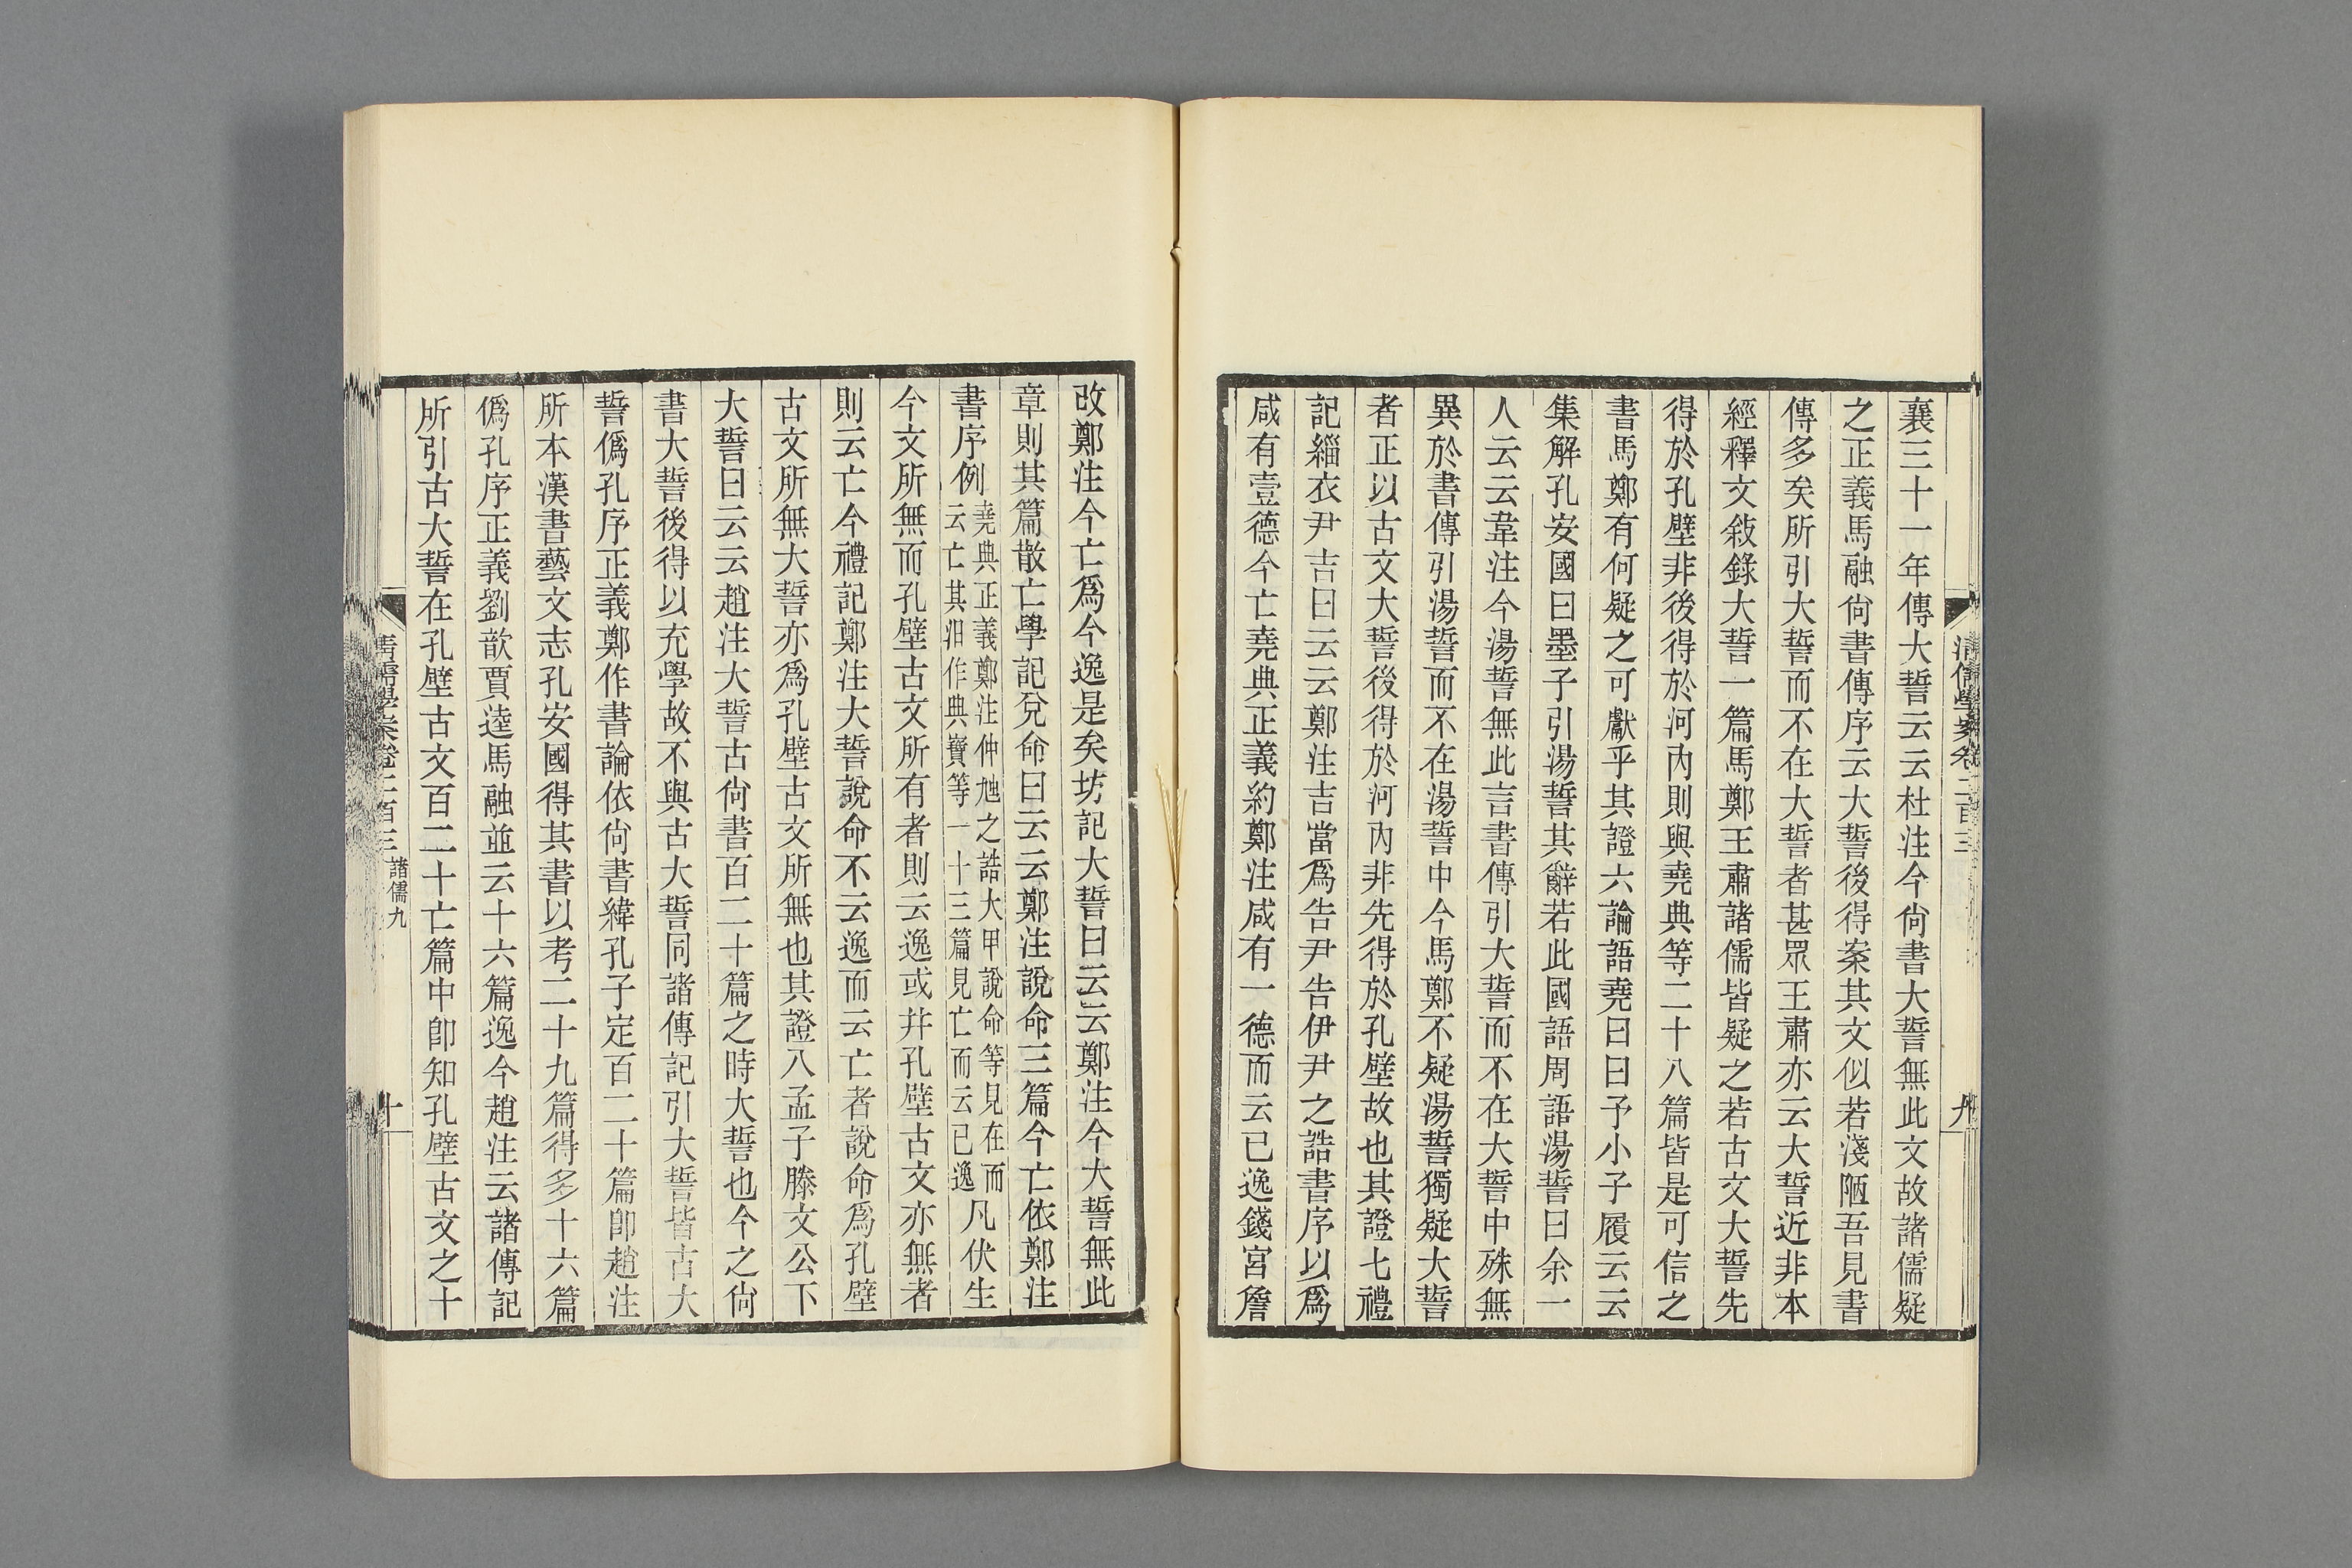 襄三十一年傳大誓云云杜注今尙書大誓無此文故諸儒疑
之正義馬融尙書傳序云大誓後得案其文似若淺陋吾見書
傳多矣所引大誓而不在大誓者甚眾王肅亦云大誓近非本
經釋文敘錄大誓一篇馬鄭王肅諸儒皆疑之若古文大誓先
得於孔壁非後得於河內則與堯典等二十八篇皆是可信之
書馬鄭有何疑之可獻乎其證六論語堯曰曰予小子履云云
集解孔安國曰墨子引湯誓其辭若此國語周語湯誓曰余一
人云云韋注今湯誓無此言書傳引大誓而不在大誓中殊無
異於書傳引湯誓而不在湯誓中今馬鄭不疑湯誓獨疑大誓
者正以古文大誓後得於河內非先得於孔壁故也其證七禮
記緇衣尹吉曰云云鄭注吉當爲告尹告伊尹之誥書序以爲
咸有壹德今亡堯典正義約鄭注咸有一德而云已逸錢宮詹
清儒學案卷二百三
九
改鄭注今亡爲今逸是矣坊記大誓曰云云鄭注今大誓無此
章則其篇散亡學記兌命曰云云鄭注說命三篇今亡依鄭注
書序例堯典正義鄭注仲虺之誥大甲說命等見在而云亡其汨作典寶等一十三篇見亡而云已逸凡伏生
今文所無而孔壁古文所有者則云逸或幷孔壁古文亦無者
則云亡今禮記鄭注大誓說命不云逸而云亡者說命爲孔壁
古文所無大誓亦爲孔壁古文所無也其證八孟子滕文公下
大誓曰云云趙注大誓古尙書百二十篇之時大誓也今之尙
書大誓後得以充學故不與古大誓同諸傳記引大誓皆古大
誓僞孔序正義鄭作書論依尙書緯孔子定百二十篇卽趙注
所本漢書藝文志孔安國得其書以考二十九篇得多十六篇
僞孔序正義劉歆賈逵馬融並云十六篇逸今趙注云諸傳記
所引古大誓在孔壁古文百二十亡篇中卽知孔壁古文之十
清儒學案卷二百三 諸儒九
十